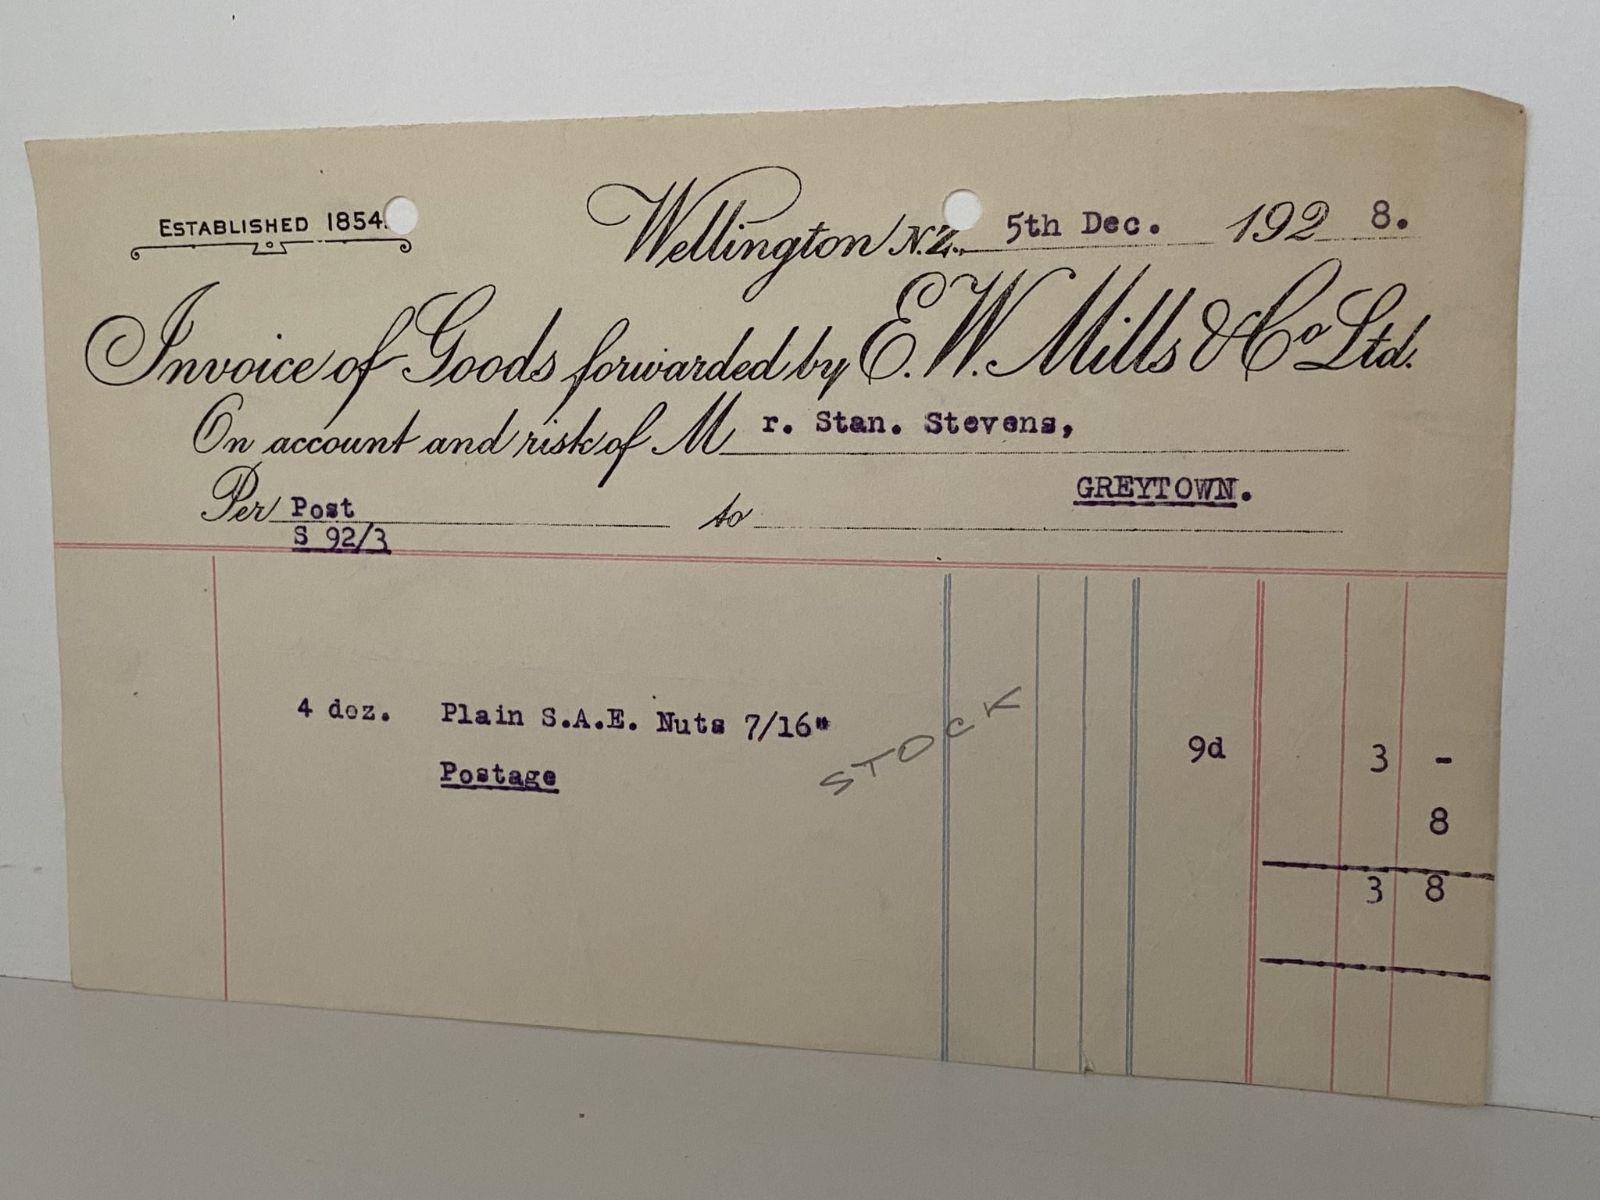 ESTABLISHED 1854.
Wellington N.Z. 5th Dec. 192 8.
Invoice of Goods forwarded by E. W. Mills & Co Ltd.
On account and risk of M r. Stan. Stevens,
GREYTOWN.
Per Post to
S 92/3
4 doz. Plain S.A.E. Nuts 7/16" 9d 3 -
STOCK
Postage 8
3 8